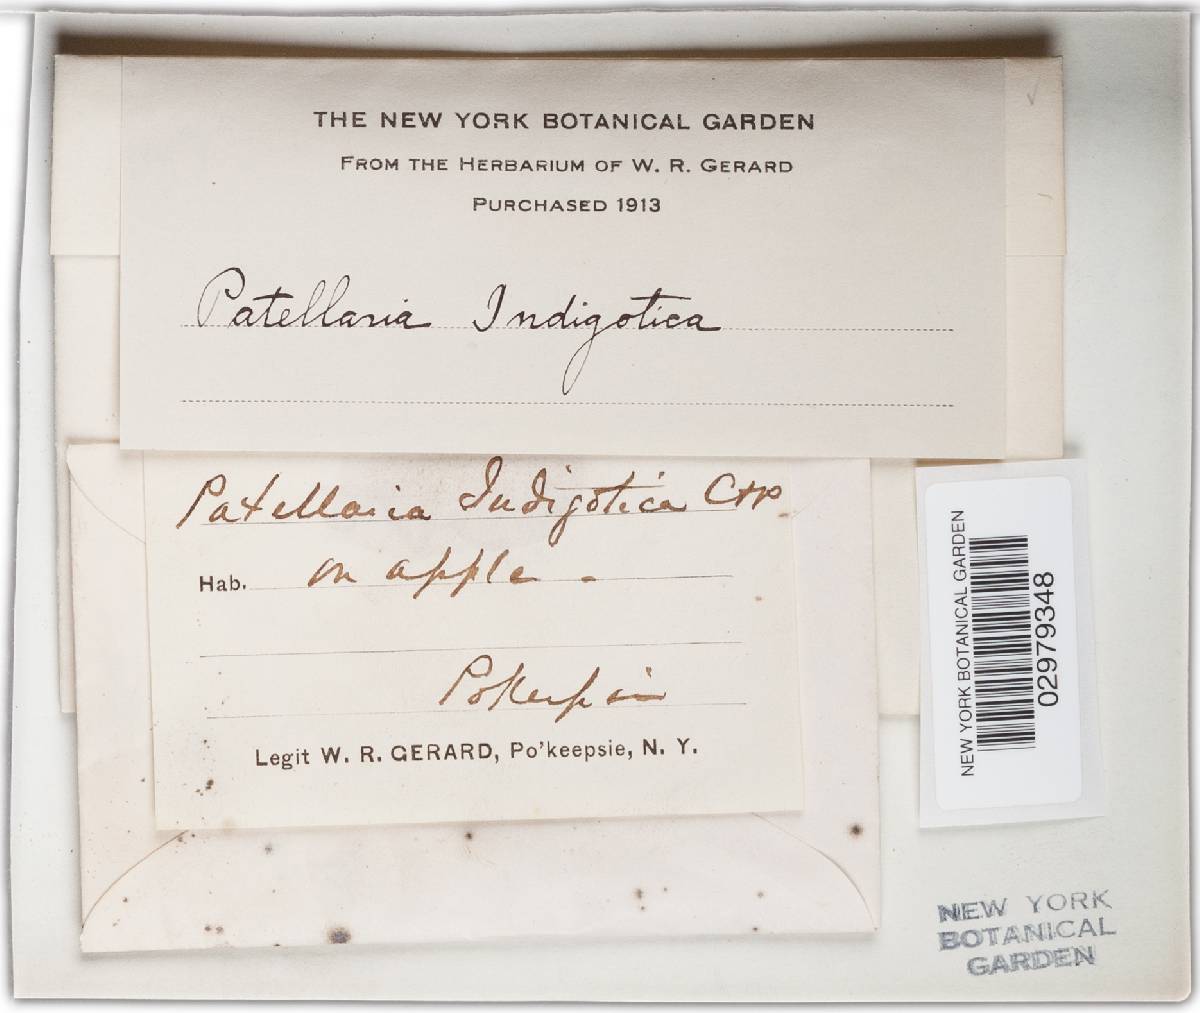 THE NEW YORK BOTANICAL GARDEN
FROM THE HERBARIUM OF W. R. GERARD
PURCHASED 1913
Patellaria Indigotica
Patellaria Indigotica C&P
Hab. on apple -
Legit W. R. GERARD, Po'keepsie, N. Y.
NEW YORK BOTANICAL GARDEN
02979348
NEW YORK
BOTANICAL
GARDEN